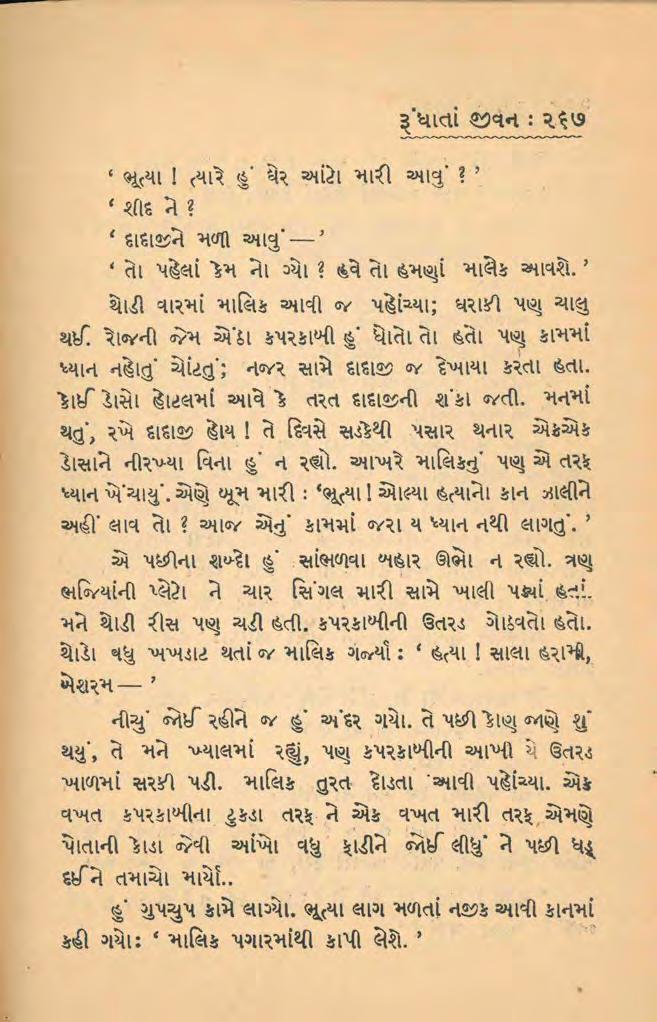 રૂંધાતાં જીવન : ૨૬૭
‘ ભૂત્યા ! ત્યારે હું ઘેર આંટો મારી આવું ? ’
‘ શીદ ને ?
‘ દાદાજીને મળી આવું — ’
‘ તો પહેલાં કેમ નો ગ્યો ? હવે તો હમણાં માલેક આવશે. ’
થોડી વારમાં માલિક આવી જ પહોંચ્યા; ઘરાકી પણ ચાલુ
થઈ. રોજની જેમ એંઠા કપરકાબી હું ધોતો તો હતો પણ કામમાં
ધ્યાન નહોતું ચોંટતું; નજર સામે દાદાજી જ દેખાયા કરતા હતા.
કોઈ ડોસો હોટલમાં આવે કે તરત દાદાજીની શંકા જતી. મનમાં
થતું, રખે દાદાજી હોય ! તે દિવસે સડકેથી પસાર થનાર એકએક
ડોસાને નીરખ્યા વિના હું ન રહ્યો. આખરે માલિકનું પણ એ તરફ
ધ્યાન ખેંચાયું. એણે બૂમ મારી : ‘ભૂત્યા ! ઓલ્યા હત્યાનો કાન ઝાલીને
અહીં લાવ તો ? આજ એનું કામમાં જરા ય ધ્યાન નથી લાગતું. ’
એ પછીના શબ્દો હું સાંભળવા બહાર ઊભો ન રહ્યો. ત્રણ
ભજિયાંની પ્લેટો ને ચાર સિંગલ મારી સામે ખાલી પડ્યાં હતાં.
મને થોડી રીસ પણ ચડી હતી. કપરકાબીની ઉતરડ ગોઠવતો હતો.
થોડો વધુ ખખડાટ થતાં જ માલિક ગર્જ્યા : ‘ હત્યા ! સાલા હરામી,
બેશરમ — ’
નીચું જોઈ રહીને જ હું અંદર ગયો. તે પછી કોણ જાણે શું
થયું, તે મને ખ્યાલમાં રહ્યું, પણ કપરકાબીની આખી યે ઉતરડ
ખાળમાં સરકી પડી. માલિક તુરત દોડતા આવી પહોંચ્યા. એક
વખત કપરકાબીના ટુકડા તરફ ને એક વખત મારી તરફ એમણે
પોતાની કોડા જેવી આંખો વધુ ફાડીને જોઈ લીધું ને પછી ધડ્
દઈને તમાચો માર્યો..
હું ગુપચુપ કામે લાગ્યો. ભૂત્યા લાગ મળતાં નજીક આવી કાનમાં
કહી ગયો: ‘ માલિક પગારમાંથી કાપી લેશે. ’